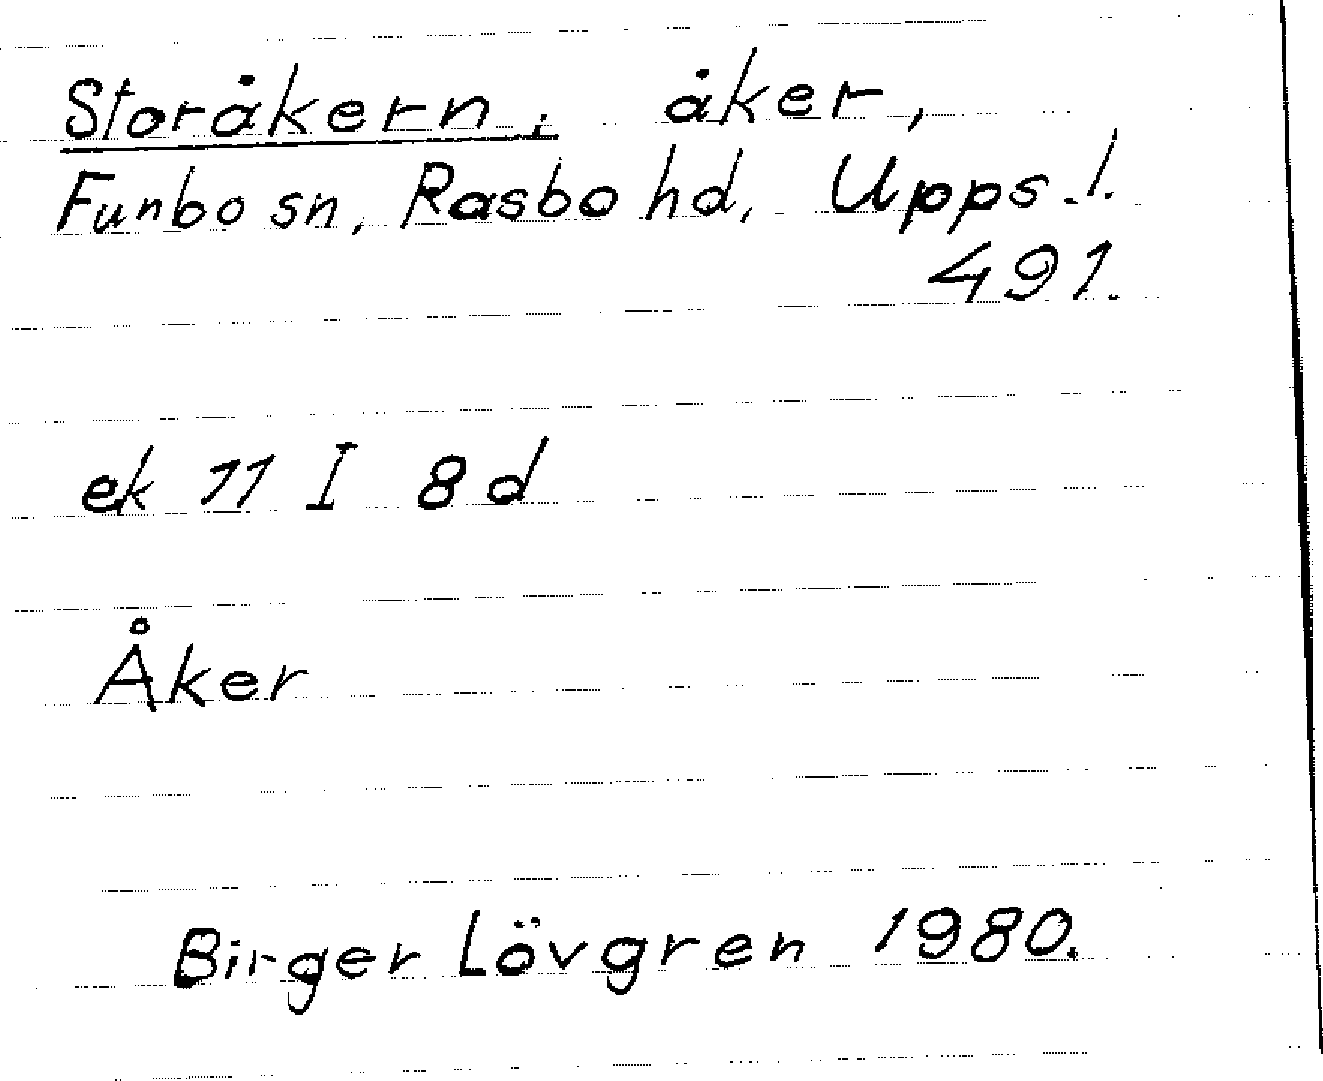 Storåkern, åker,
Funbo sn, Rasbo hd, Upps. l.
491.
ek 11 I 8 d
Åker
Birger Lövgren 1980.